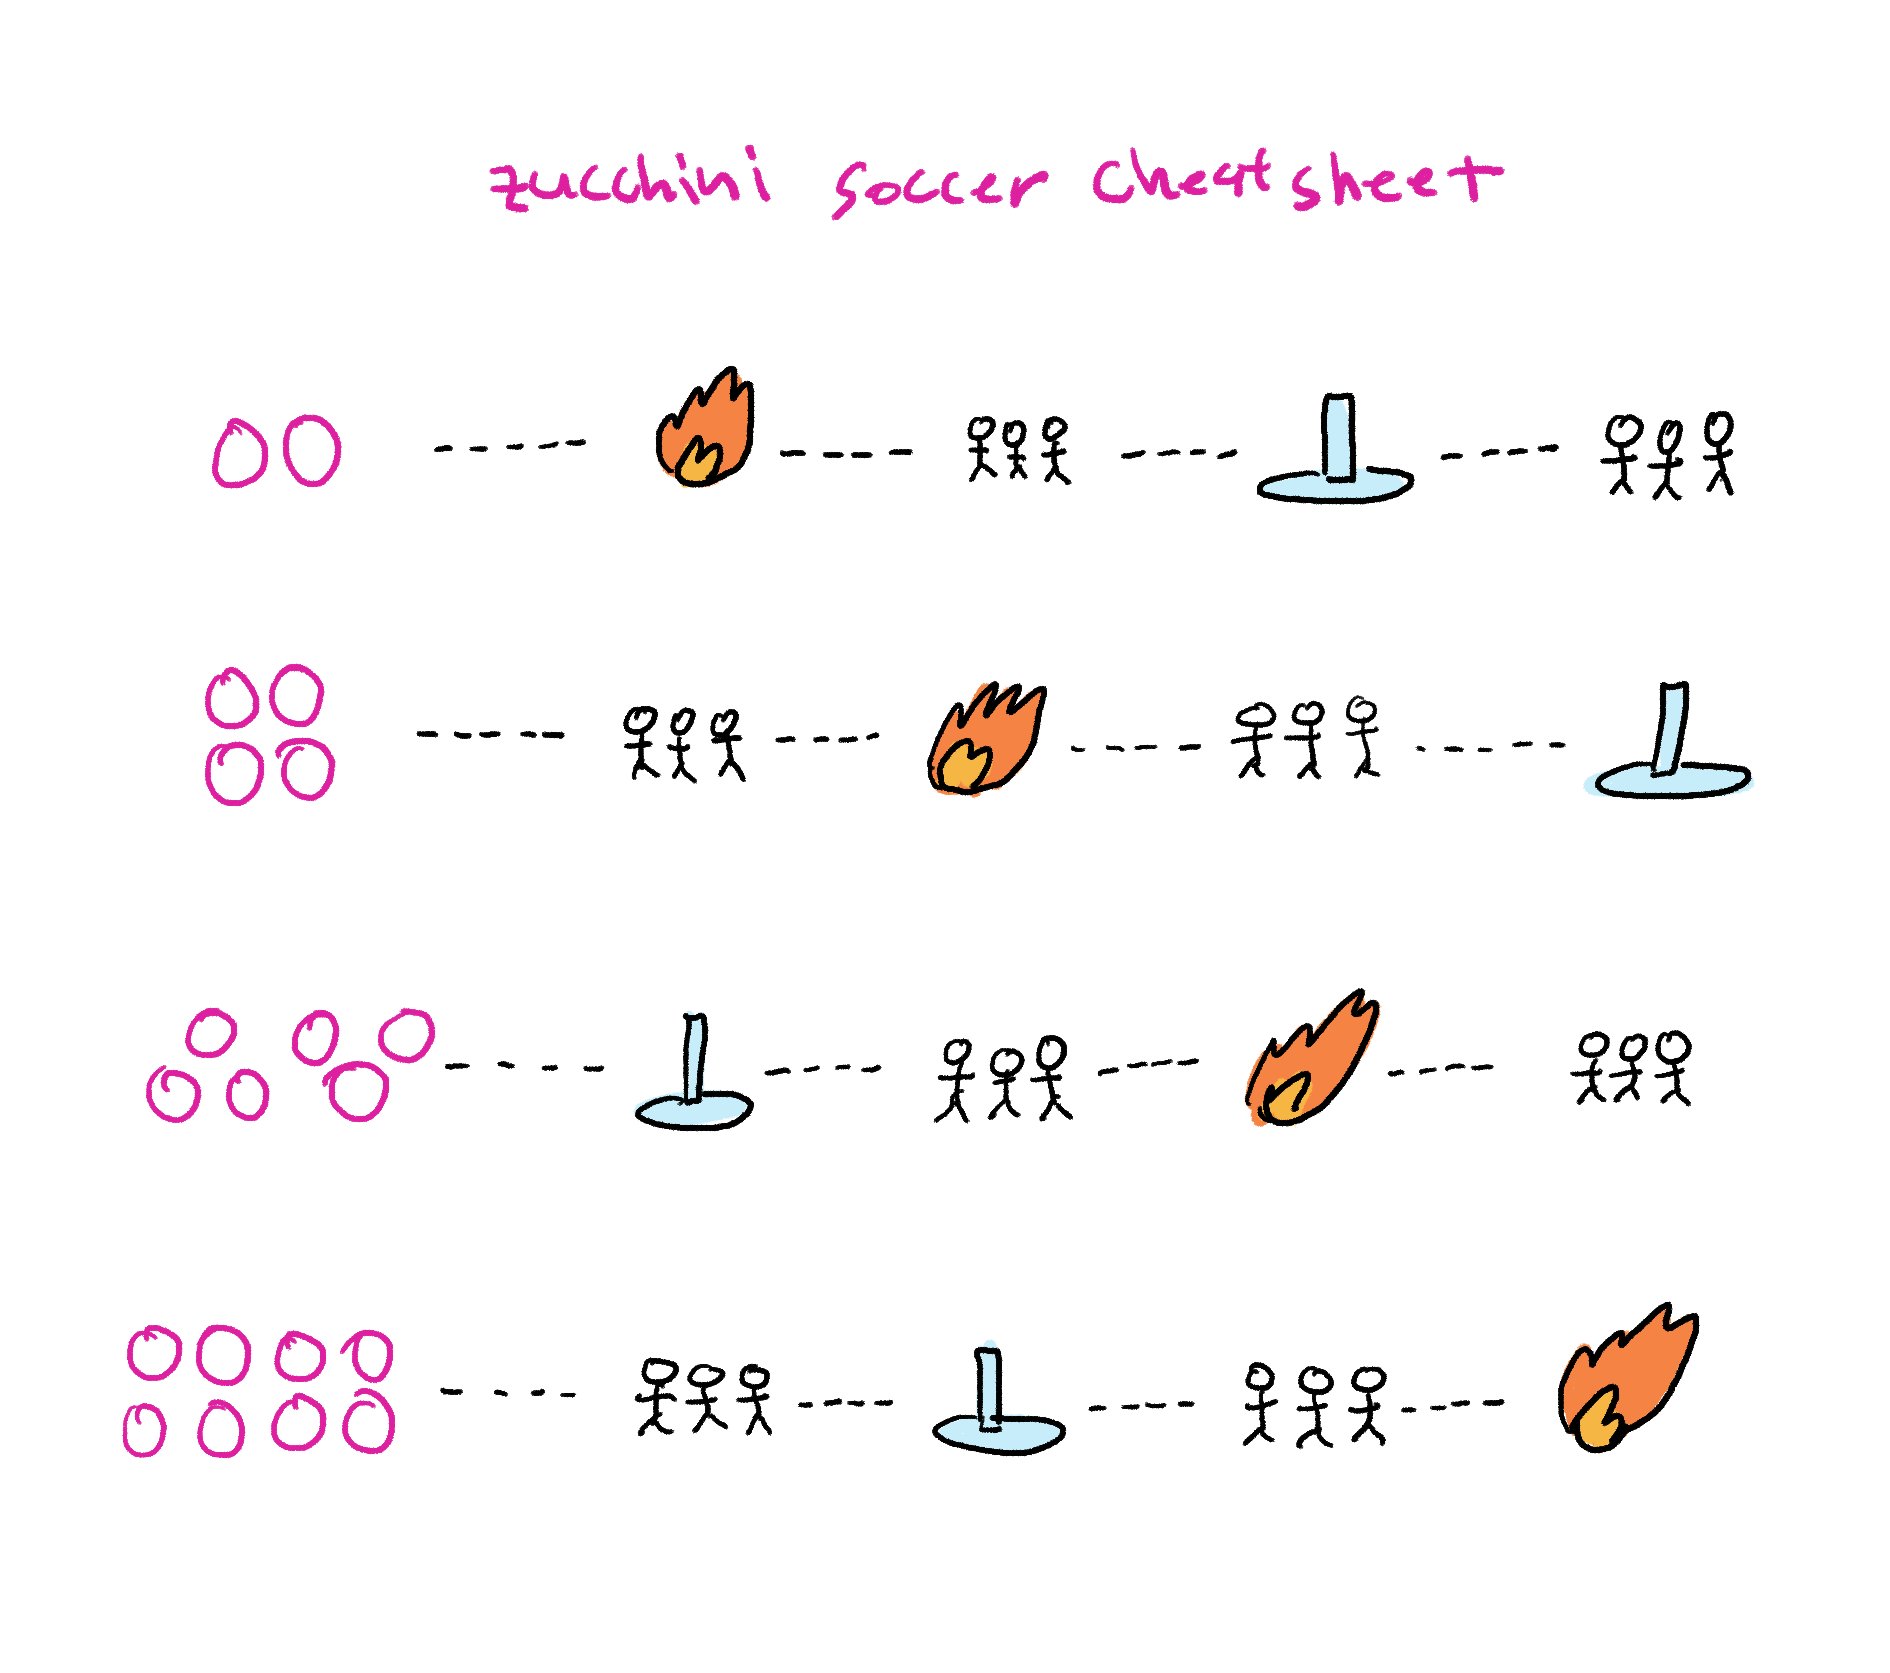 zucchini soccer cheat sheet